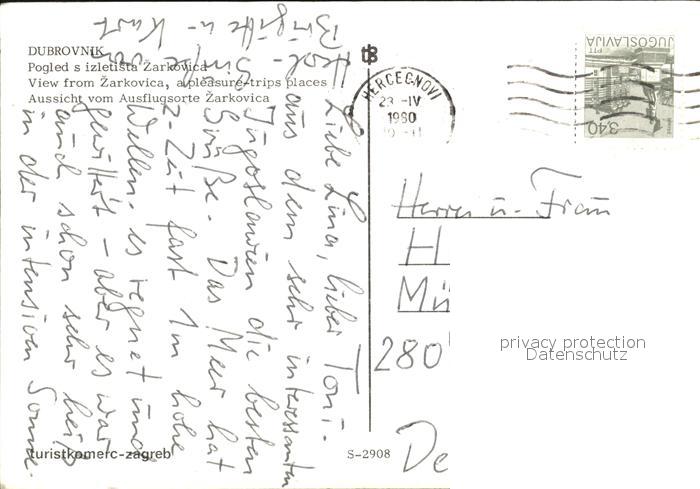 DUBROVNIK
Pogled s izletišta Žarkovica
View from Žarkovica, a pleasure-trips places
Aussicht vom Ausflugsorte Žarkovica
HERCEGNOVI
23 -IV
1980
JUGOSLAVIJA
PTT
3,40
Liebe Lina, lieber Toni.
aus dem sehr interessanten
Jugoslawien die besten
Grüße. Das Meer hat
z-Zeit fast 1m hohe
Wellen. es regnet und
gewittert - aber es war
auch schon sehr heiß
in der intensiven Sonne.
Herzl- Grüße
Brigitte u- Kurt
Herrn u- Frau
H
Mü
280
De
privacy protection
Datenschutz
turistkomerc-zagreb
S-2908